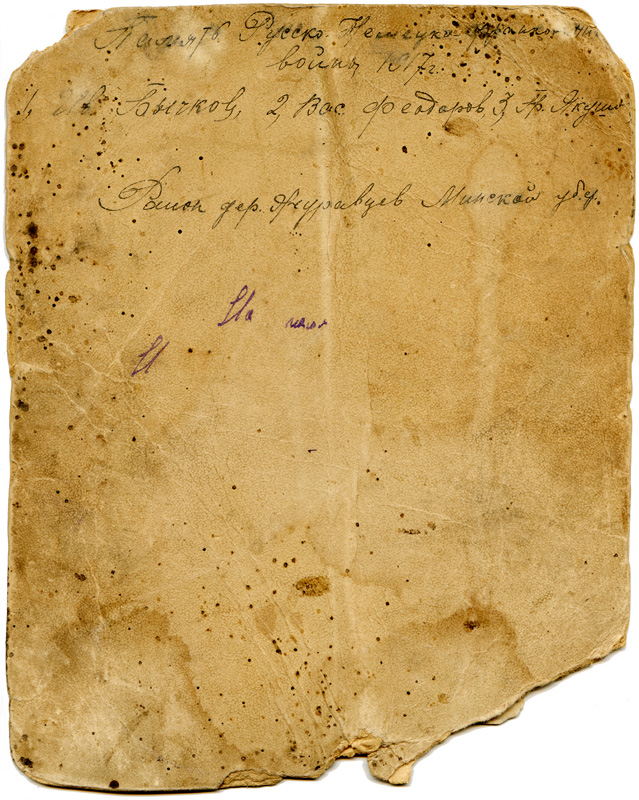 Память Русско. Немецко
войны 1917г.
1, Ив. Бычков, 2, Вас. Феодоров, 3, Гр. Якуш
Район дер. Журавцев Минской губ.
На
И